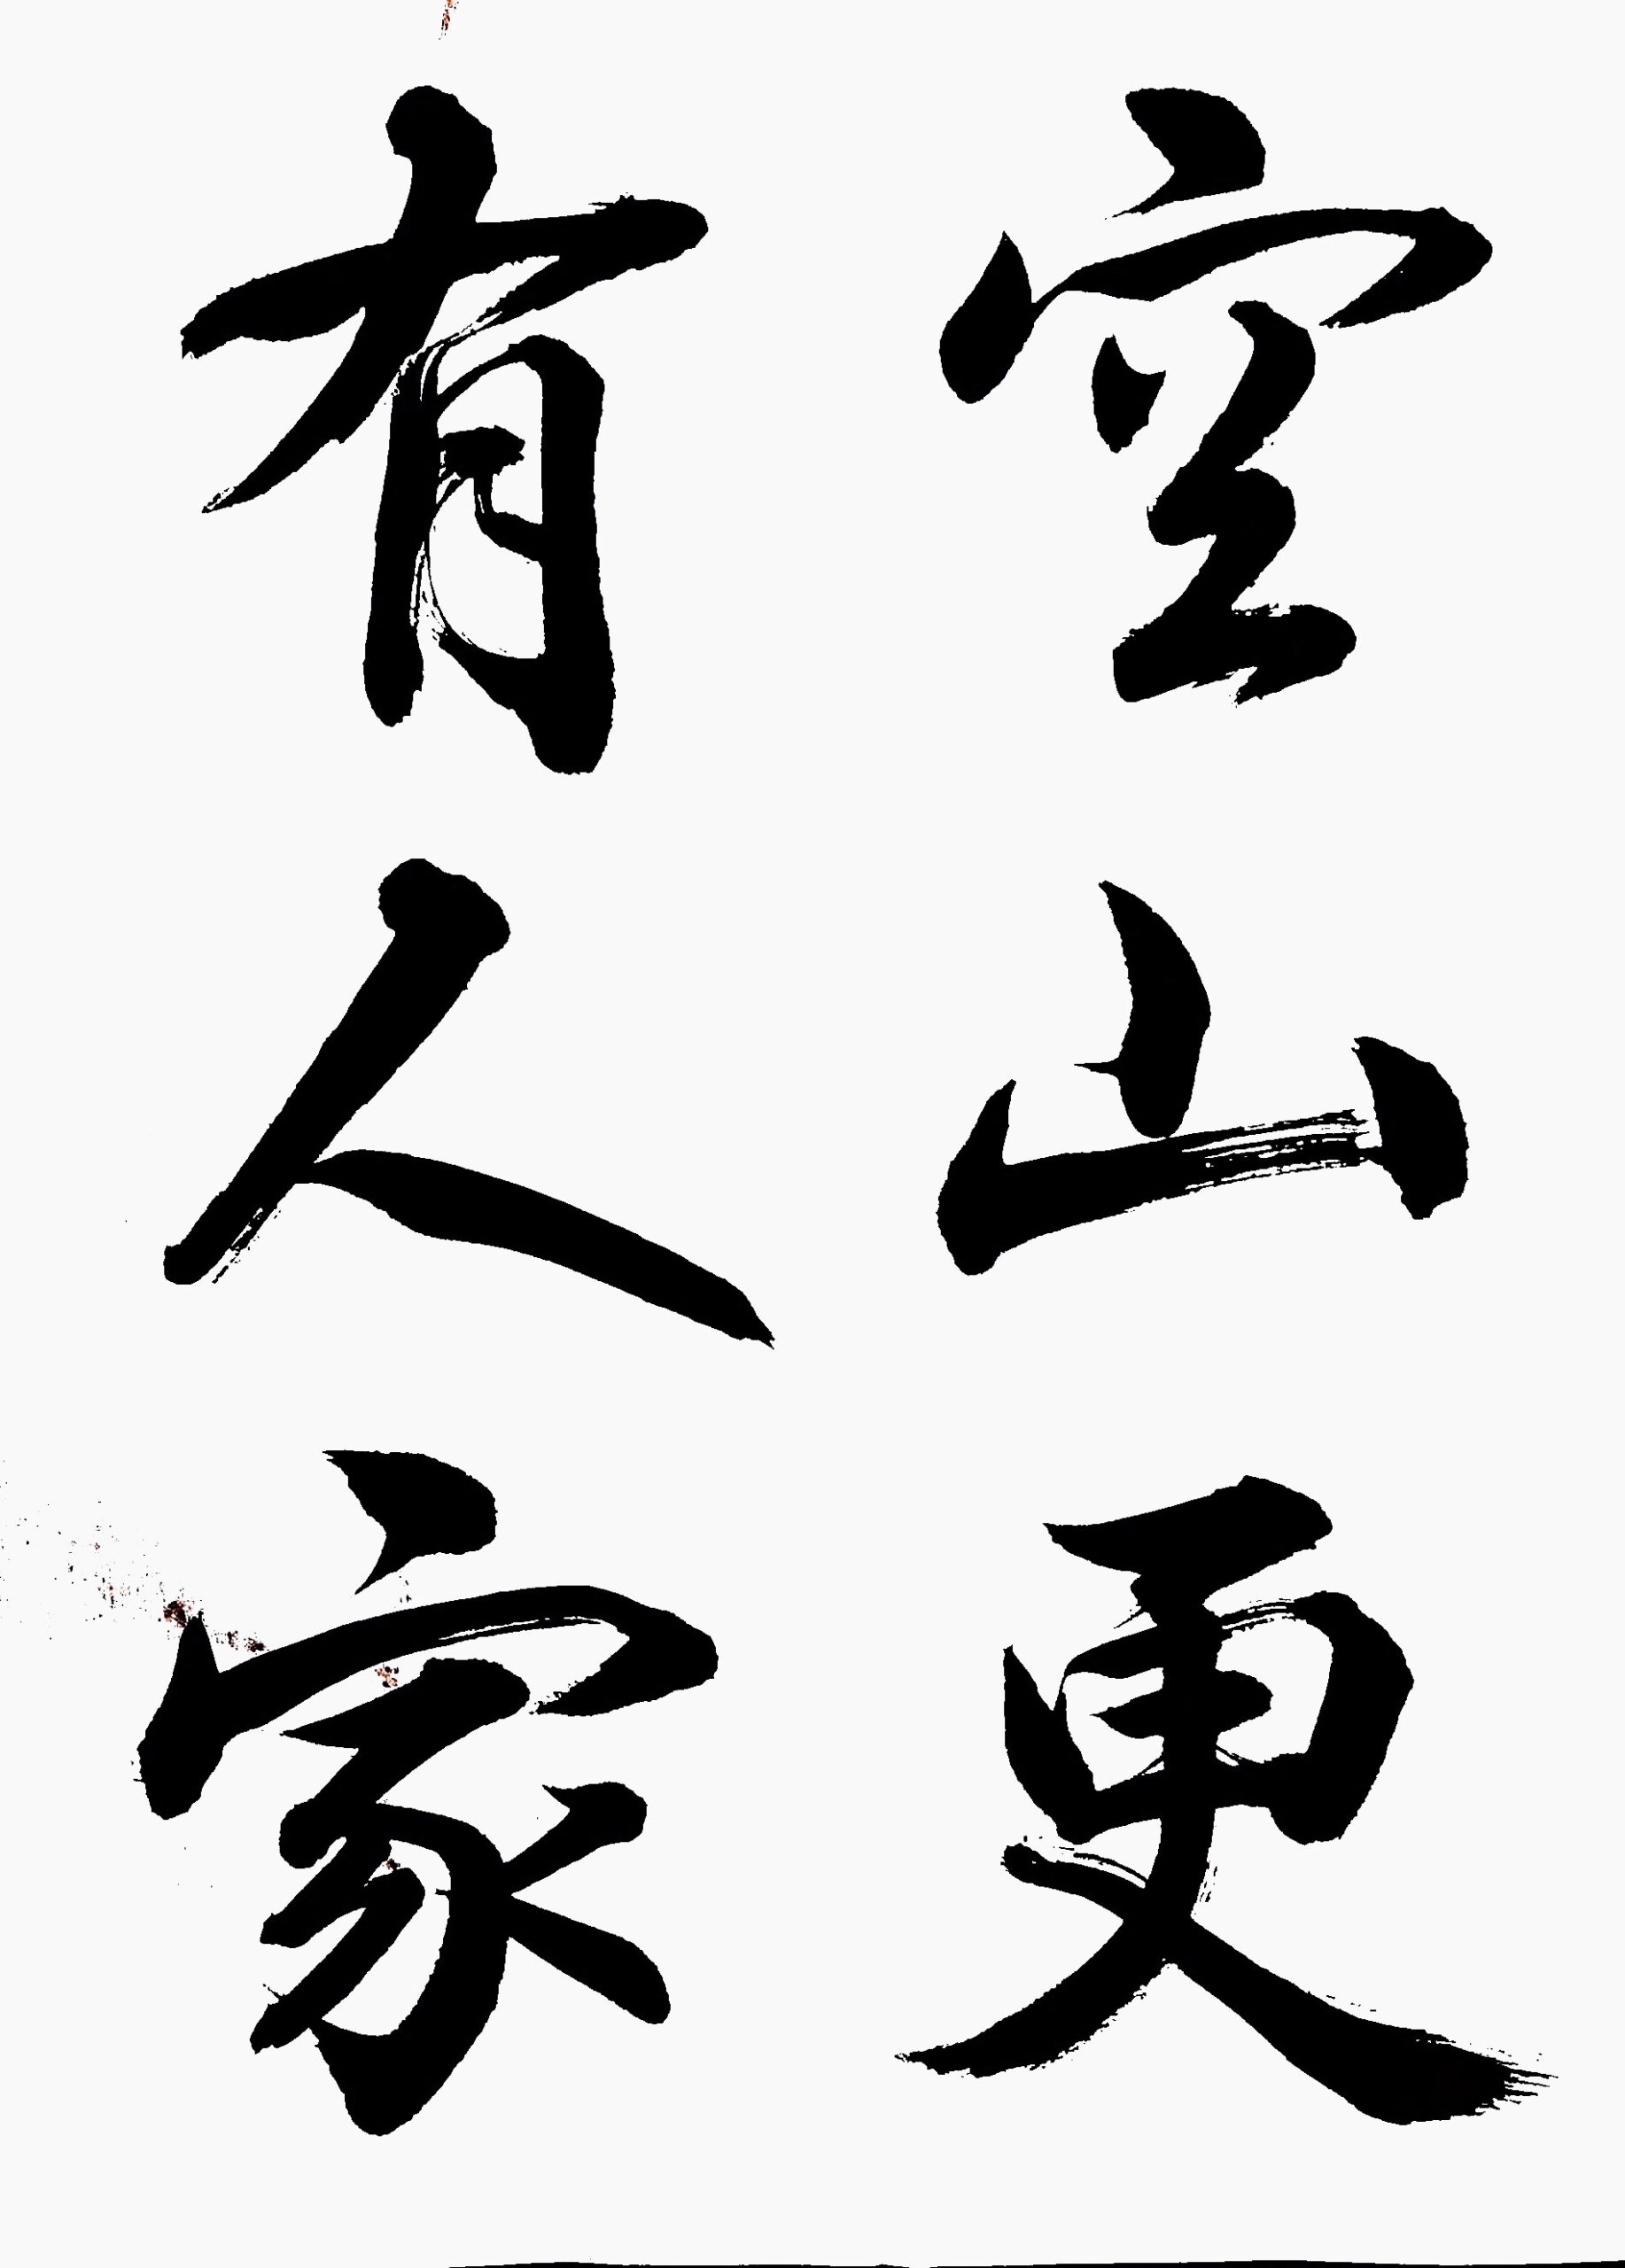 空山更
有人家